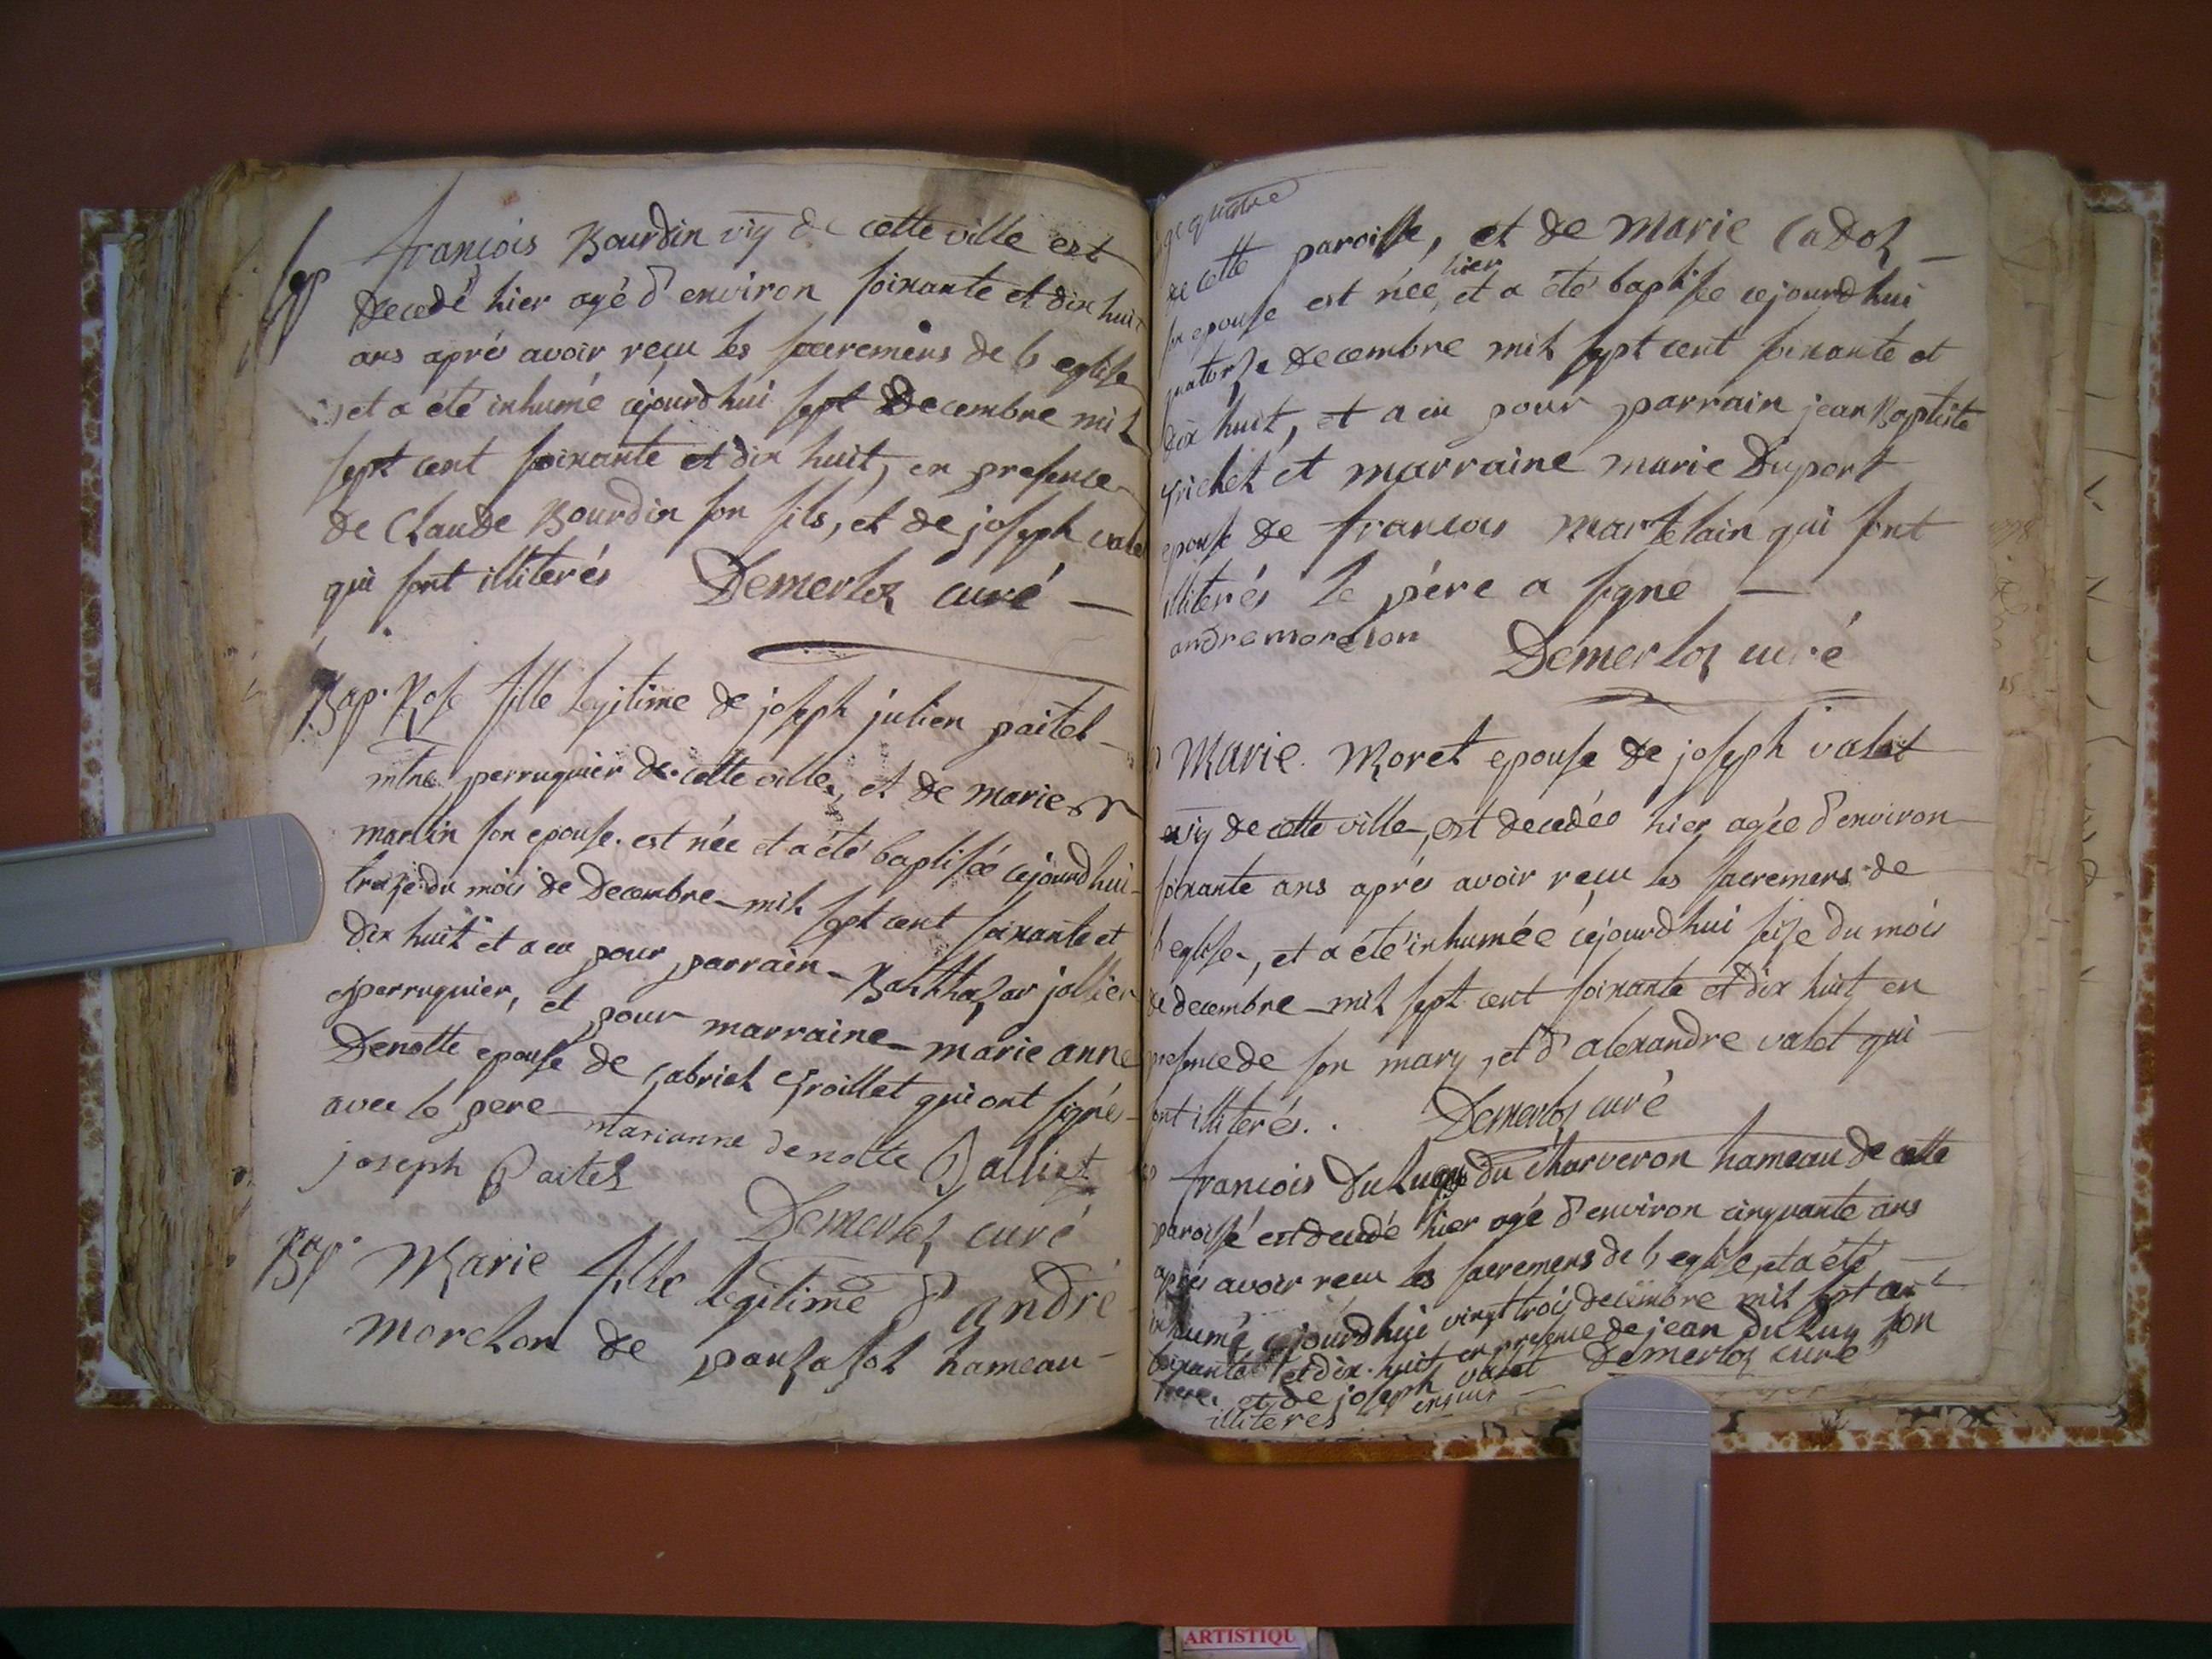 Sep
francois Bourdin vig de cette ville est
decedé hier agé d'environ soixante et dix huit
ans aprés avoir reçu les sacremens de l'eglise
et a été inhumé cejourd'hui sept Decembre mil
sept cent soixante et dix huit, en presence
de Claude Bourdin son fils, et de joseph valet
qui sont illiterés Demerloz curé
Bap. Rose fille legitime de joseph julien paitel
mtre perruquier de cette ville, et de marie
martin son epouse. est née et a été baptisée cejourd'hui
treize du mois de Decembre mil sept cent soixante et
dix huit et a eu pour parrain Balthazar jollier
perruquier, et pour marraine marie anne
Denotte epouse de gabriel groillet qui ont signé
avec le pere marianne denotte Balliet
joseph Paitel
Demerloz curé
Bap. Marie fille legitime d'andré
morelon de hameau
de cette paroisse, et de Marie Cadoz
son epouse est née hier, et a été baptisée cejourdhui
quatorze decembre mil sept cent soixante et
dix huit, et a eu pour parrain jean Baptiste
grichet et marraine marie Duport
epouse de francois martelain qui sont
illiterés le pére a signe
andre morelon Demerloz curé
Marie Moret epouse de joseph valet
vig de cette ville, est decedée hier agée d'environ
soixante ans aprés avoir reçu les sacremens de
l'eglise, et a été inhumée cejourd'hui seize du mois
de decembre mil sept cent soixante et dix huit en
presence de son mary, et d'alexandre valet qui
sont illiterés. Demerloz curé
francois du charveron hameau de cette
paroisse est decedé hier agé d'environ cinquante ans
aprés avoir recu les sacremens de l'eglise, et a été
inhumé cejourd'hui vingt trois decembre mil sept cent
soixante et dix huit en presence de jean duluy son
frere et de joseph valet Demerloz curé
illiteres
ARTISTIQU